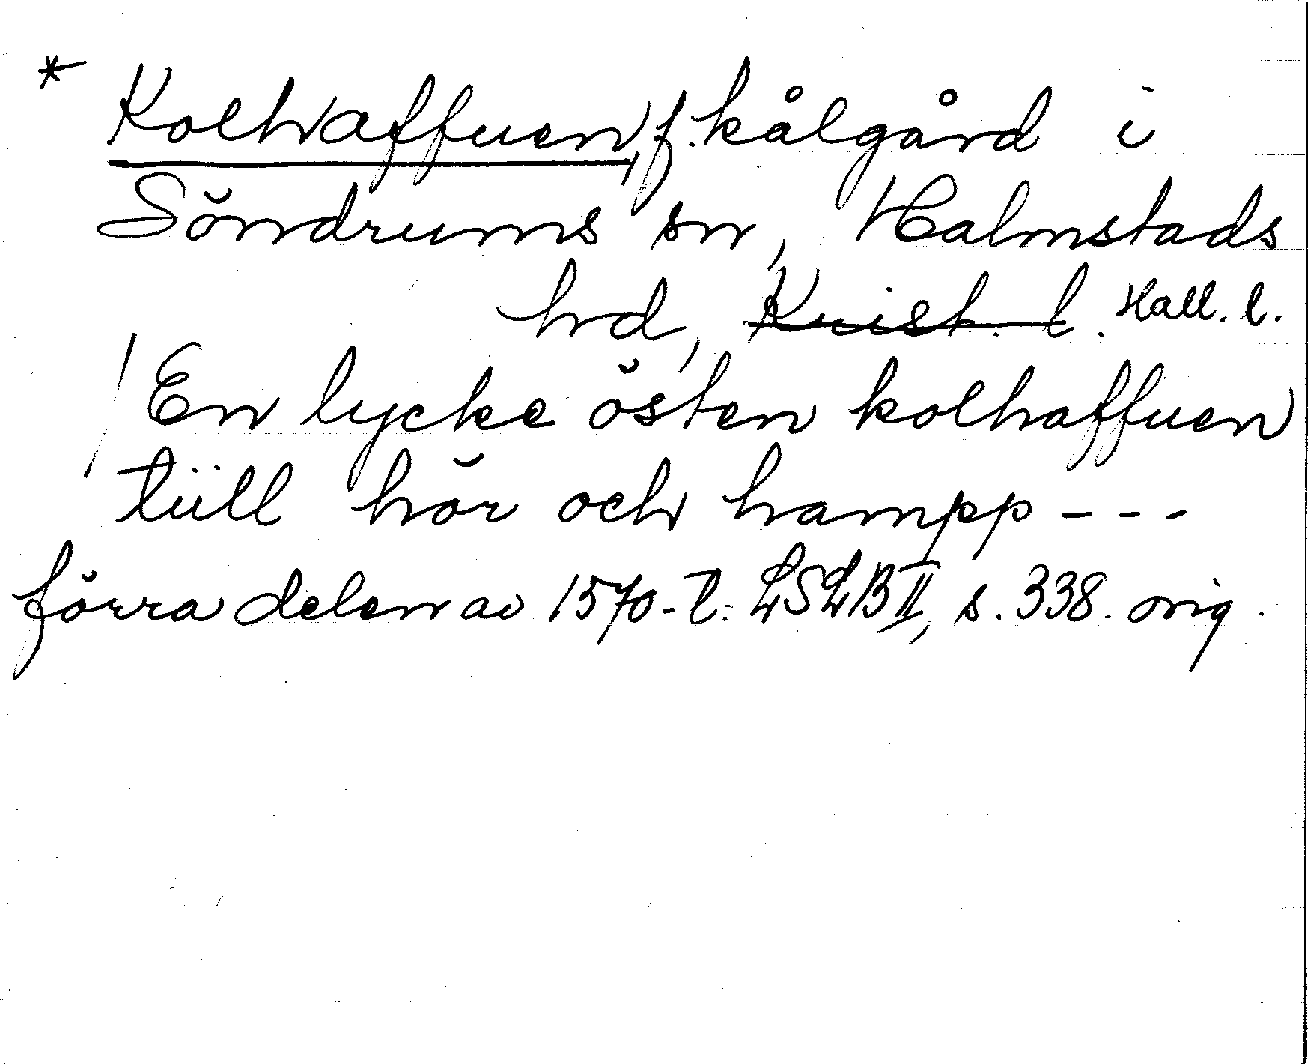 * Kolhaffuen, f. kålgård i
Söndrums sn, Halmstads
hrd, Krist. l. Hall. l.
/ En lycke östen kolhaffuen
tüll hör och hampp - - -
förra delen av 1570-t. LSLB II, s. 338. orig.